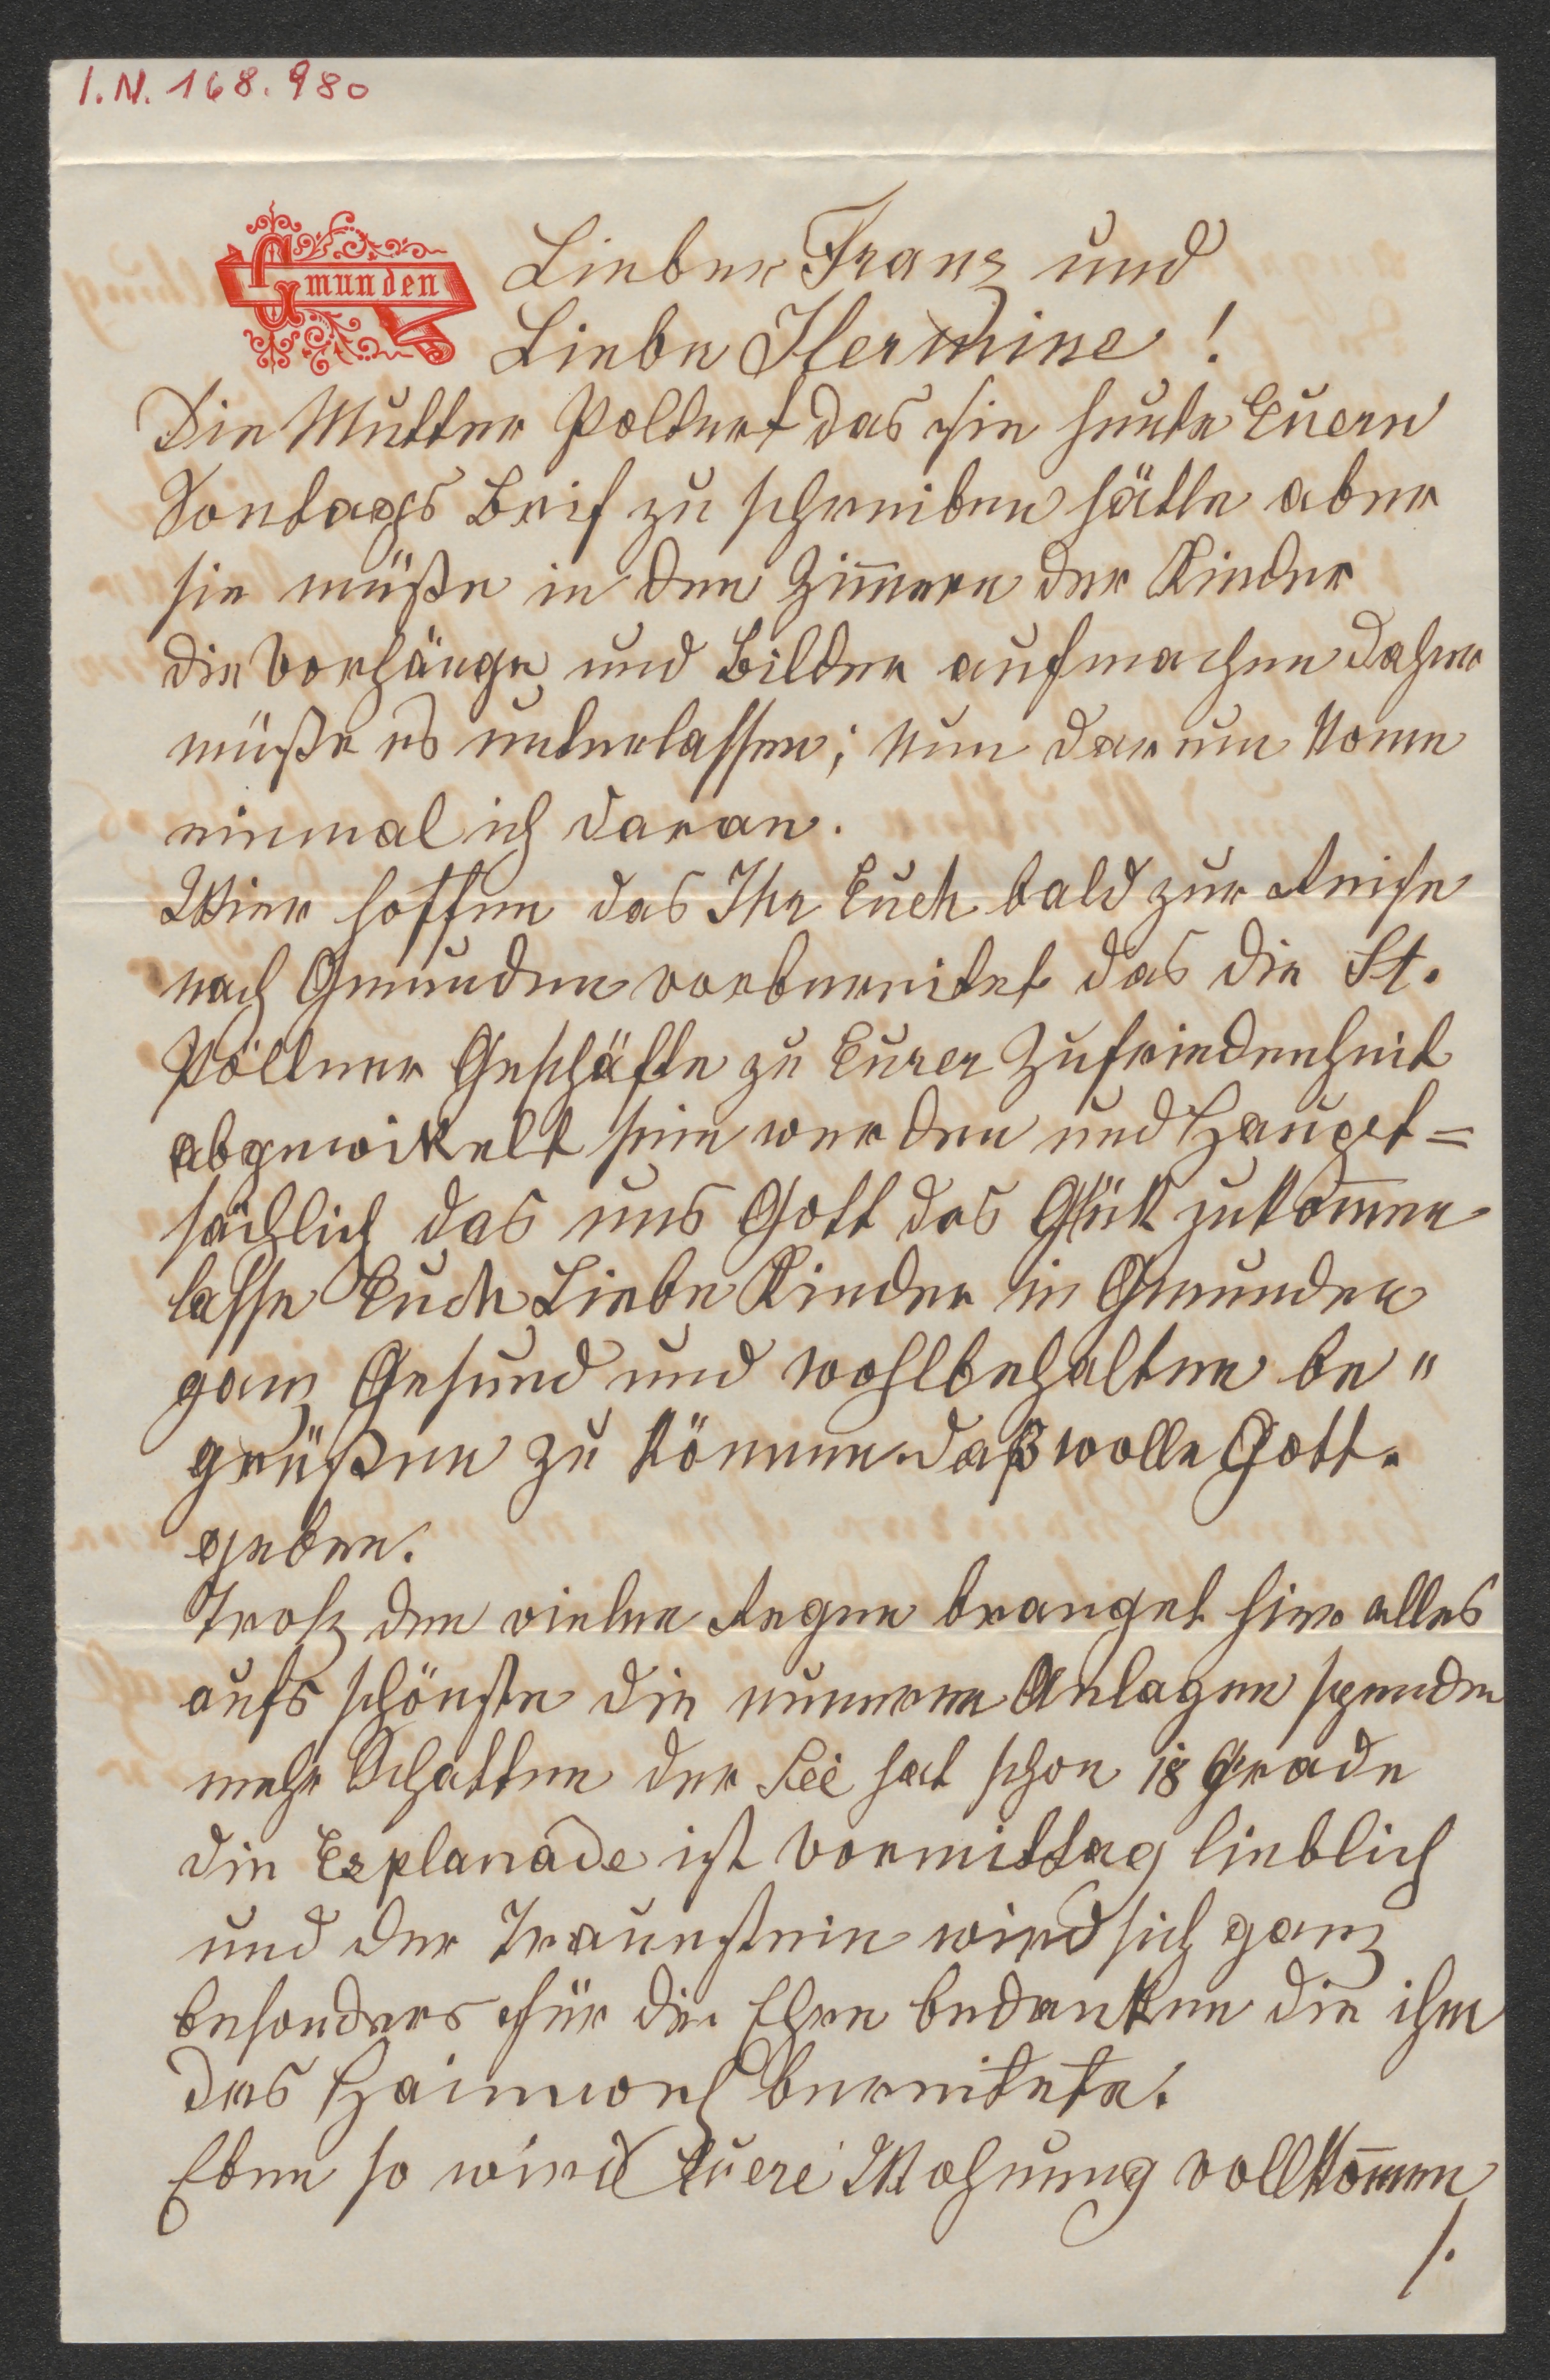 I.N. 168.980
Gmunden
Lieber Franz und
Liebe Hermine!
Die Mutter Poltert das sie heute Euern
Sontags Brif zu schreiben hätte aber
sie müße in den Zim̅ern der Kinder
die Vorhänge und Bilder aufmachen daher
müße es unterlassen; nun darum kome
einmal ich daran.
Wier hoffen das Ihr Euch bald zur Reise
nach Gmunden vorbereitet das die St.
Pöltner Geschäfte zu Eurer Zufriedenheit
abgewikelt sein werden und Haupt=
sächlich das uns Gott das Glük zukom̅en
lasse Euch Liebe Kinder in Gmunden
ganz Gesund und wohlbehalten be"
grüßen zu können daß wolle Gott.
geben.
Trotz den vielen Regen branget hier alles
aufs schönste die neueren Anlagen spenden
mehr Schatten der See hat schon 18 Grade
die Esplanade ist Vormittag lieblich
und der Traunstein wird sich ganz
besonders für die Ehre bedanken die ihm
das Heimweh bereitete.
Eben so wird Euere Wohnung vollkom̅en
/.